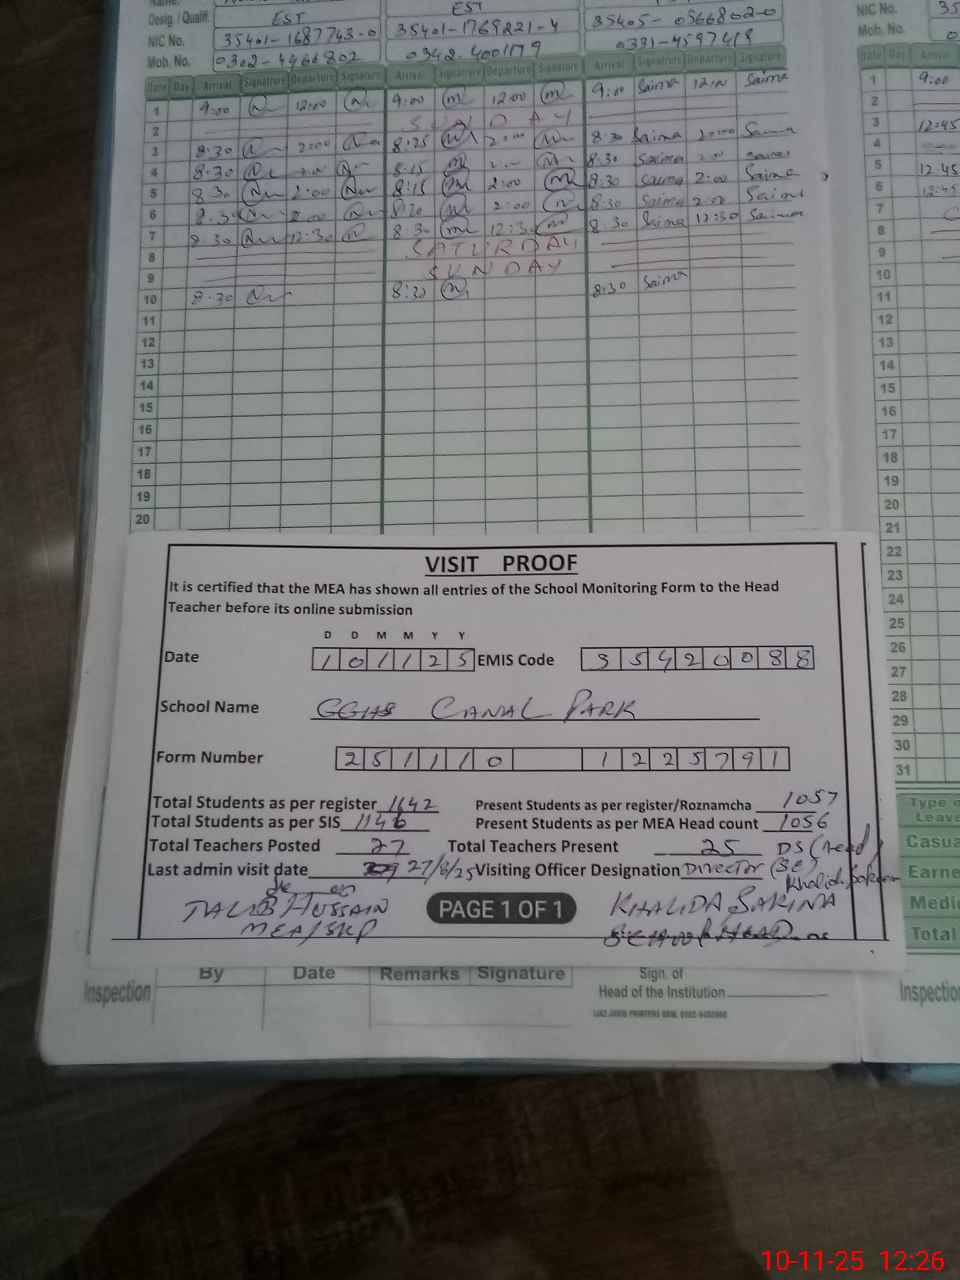 Name.
Desig. / Qualif. EST EST
NIC No. 35401-1687743-0 35401-1769221-4 35405-0566802-0 NIC No. 35
Mob. No. 0302-4466802 0342-4001179 0391-4597419 Mob. No. 0
Date Day Arrival Signature Departure Signature Arrival Signature Departure Signature Arrival Signature Departure Signature Date Day Arrival
1 9:00 12:00 9:00 12:00 9:00 Saima 12:00 Saima 1 9:00
2 SUNDAY 2
3 8:30 2:00 8:25 2:00 8:30 Saima 2:00 Saima 3 12:45
4 8:30 8:15 8:30 Saima Saima 4
5 8:30 2:00 8:15 2:00 8:30 Saima 2:00 Saima 5 12:45
6 8:30 2:00 8:20 2:00 8:30 Saima 2:00 Saima 6 12:45
7 8:30 12:30 8:30 12:30 8:30 Saima 12:30 Saima 7
8 SATURDAY 8
9 SUNDAY 9
10 8:30 8:30 8:30 Saima 10
11 11
12 12
13 13
14 14
15 15
16 16
17 17
18 18
19 19
20 20
21
22
23
24
25
26
27
28
29
30
31
VISIT PROOF
It is certified that the MEA has shown all entries of the School Monitoring Form to the Head
Teacher before its online submission
D D M M Y Y
Date 1 0 1 1 2 5 EMIS Code 3 5 4 2 0 0 8 8
School Name GGHS CANAL PARK
Form Number 2 5 1 1 1 0 1 2 2 5 7 9 1
Total Students as per register 1142 Present Students as per register/Roznamcha 1057
Total Students as per SIS 1146 Present Students as per MEA Head count 1056
Total Teachers Posted 27 Total Teachers Present 25 DS (Head)
Last admin visit date 27/8/25 Visiting Officer Designation DIRECTOR (SE)
TALIB HUSSAIN PAGE 1 OF 1 KHALIDA SAKINA
MEA/SKP
Type of
Leave
Casua
Earne
Medi
Total
By Date Remarks Signature Sign. of
Inspection Head of the Institution Inspectio
10-11-25 12:26